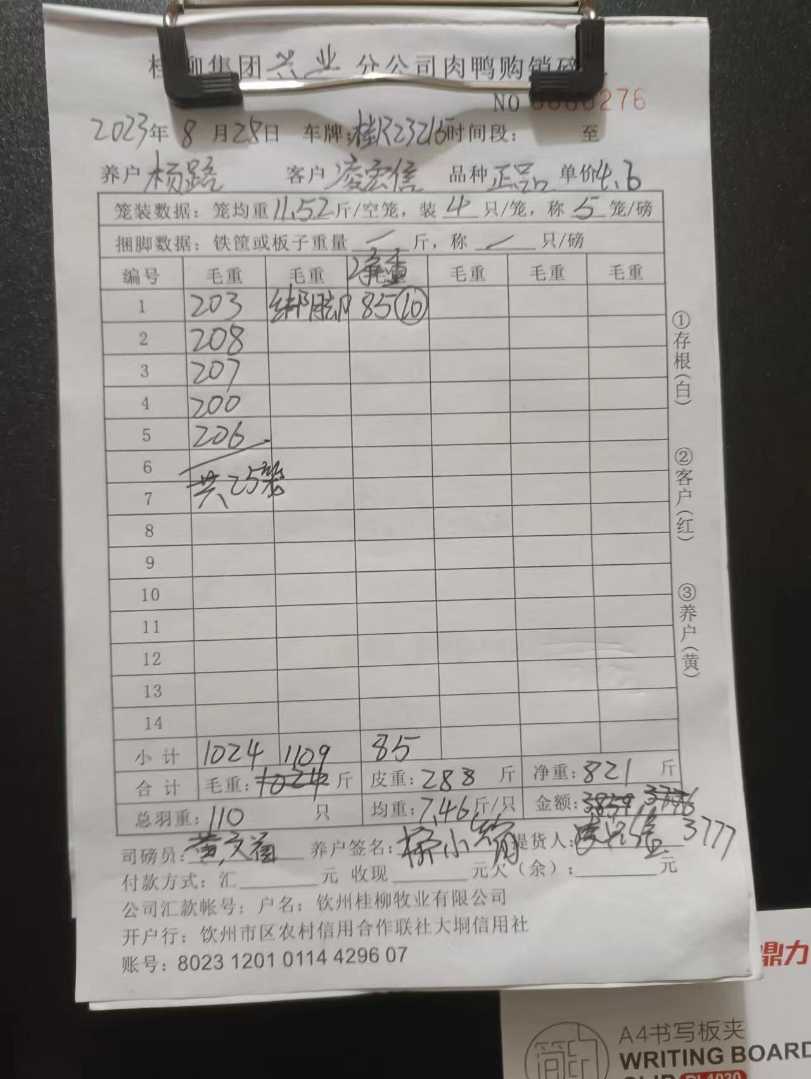 桂柳集团兴业分公司肉鸭购销磅
NO 0000276
2023年 8月25日 车牌:桂R23215时间段: 至
养户杨路 客户凌宏信 品种正品 单价4.6
笼装数据: 笼均重11.52斤/空笼, 装4只/笼, 称5笼/磅
捆脚数据: 铁筐或板子重量 / 斤, 称 / 只/磅
编号 毛重 毛重 净重 毛重 毛重 毛重
1 203 85(10)
2 208
3 207
4 200
5 206
6
7 共25笼
8
9
10
11
12
13
14
小计 1024 1109 85
合计 毛重:1024斤 皮重:288斤 净重:821斤
总羽重:110只 均重:7.46斤/只 金额:3859 3776
司磅员: 养户签名: 提货人: 3777
付款方式: 汇 元 收现 元欠(余): 元
公司汇款帐号: 户名: 钦州桂柳牧业有限公司
开户行: 钦州市区农村信用合作联社大垌信用社
账号: 8023 1201 0114 4296 07
①存根(白)
②客户(红)
③养户(黄)
鼎力
简约
A4书写板夹
WRITING BOARD